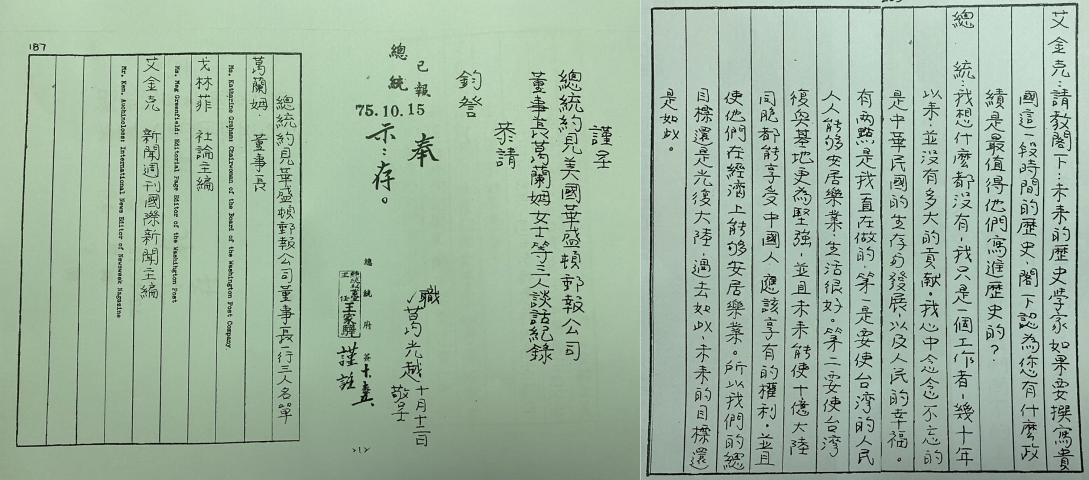 謹呈
總統約見美國華盛頓郵報公司
董事長葛蘭姆女士等三人談話紀錄
恭請
鈞詧
職葛光越敬呈
十月十三日
已報
總統
75.10.15
奉
示:存。
總統府
王家驊
謹註
187
總統約見華盛頓郵報公司董事長一行三人名單
葛蘭姆 董事長
Ms. Katharine Graham: Chairwoman of the Board of the Washington Post Company
戈林菲 社論主編
Ms. Meg Greenfield: Editorial Page Editor of the Washington Post
艾金克 新聞週刊國際新聞主編
Mr. Ken. Auchincloss: International News Editor of Newsweek Magazine
艾金克:請教閣下:未來的歷史學家如果要撰寫貴
國這一段時間的歷史,閣下認為您有什麼政
績是最值得他們寫進歷史的?
總 統:我想什麼都沒有,我只是一個工作者,幾十年
以來,並沒有多大的貢獻。我心中念念不忘的
是中華民國的生存與發展,以及人民的幸福。
有兩點是我直在做的,第一是要使台灣的人民
人人能夠安居樂業,生活很好。第二要使台灣
復興基地更為堅強,並且未來能使十億大陸
同胞都能享受中國人應該享有的權利,並且
使他們在經濟上能夠安居樂業。所以我們的總
目標還是光復大陸,過去如此,未來的目標還
是如此。